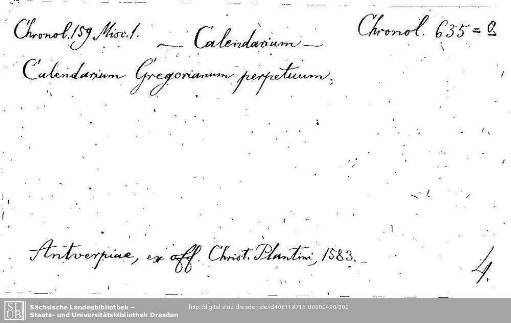 Chronol. 159 Misc. 1.
— Calendarium —
Chronol. 635 =
Calendarium Gregorianum perpetuum.
Antverpiae, ex off. Christ. Plantini, 1583.
4.
SLUB
Sächsische Landesbibliothek –
Staats- und Universitätsbibliothek Dresden